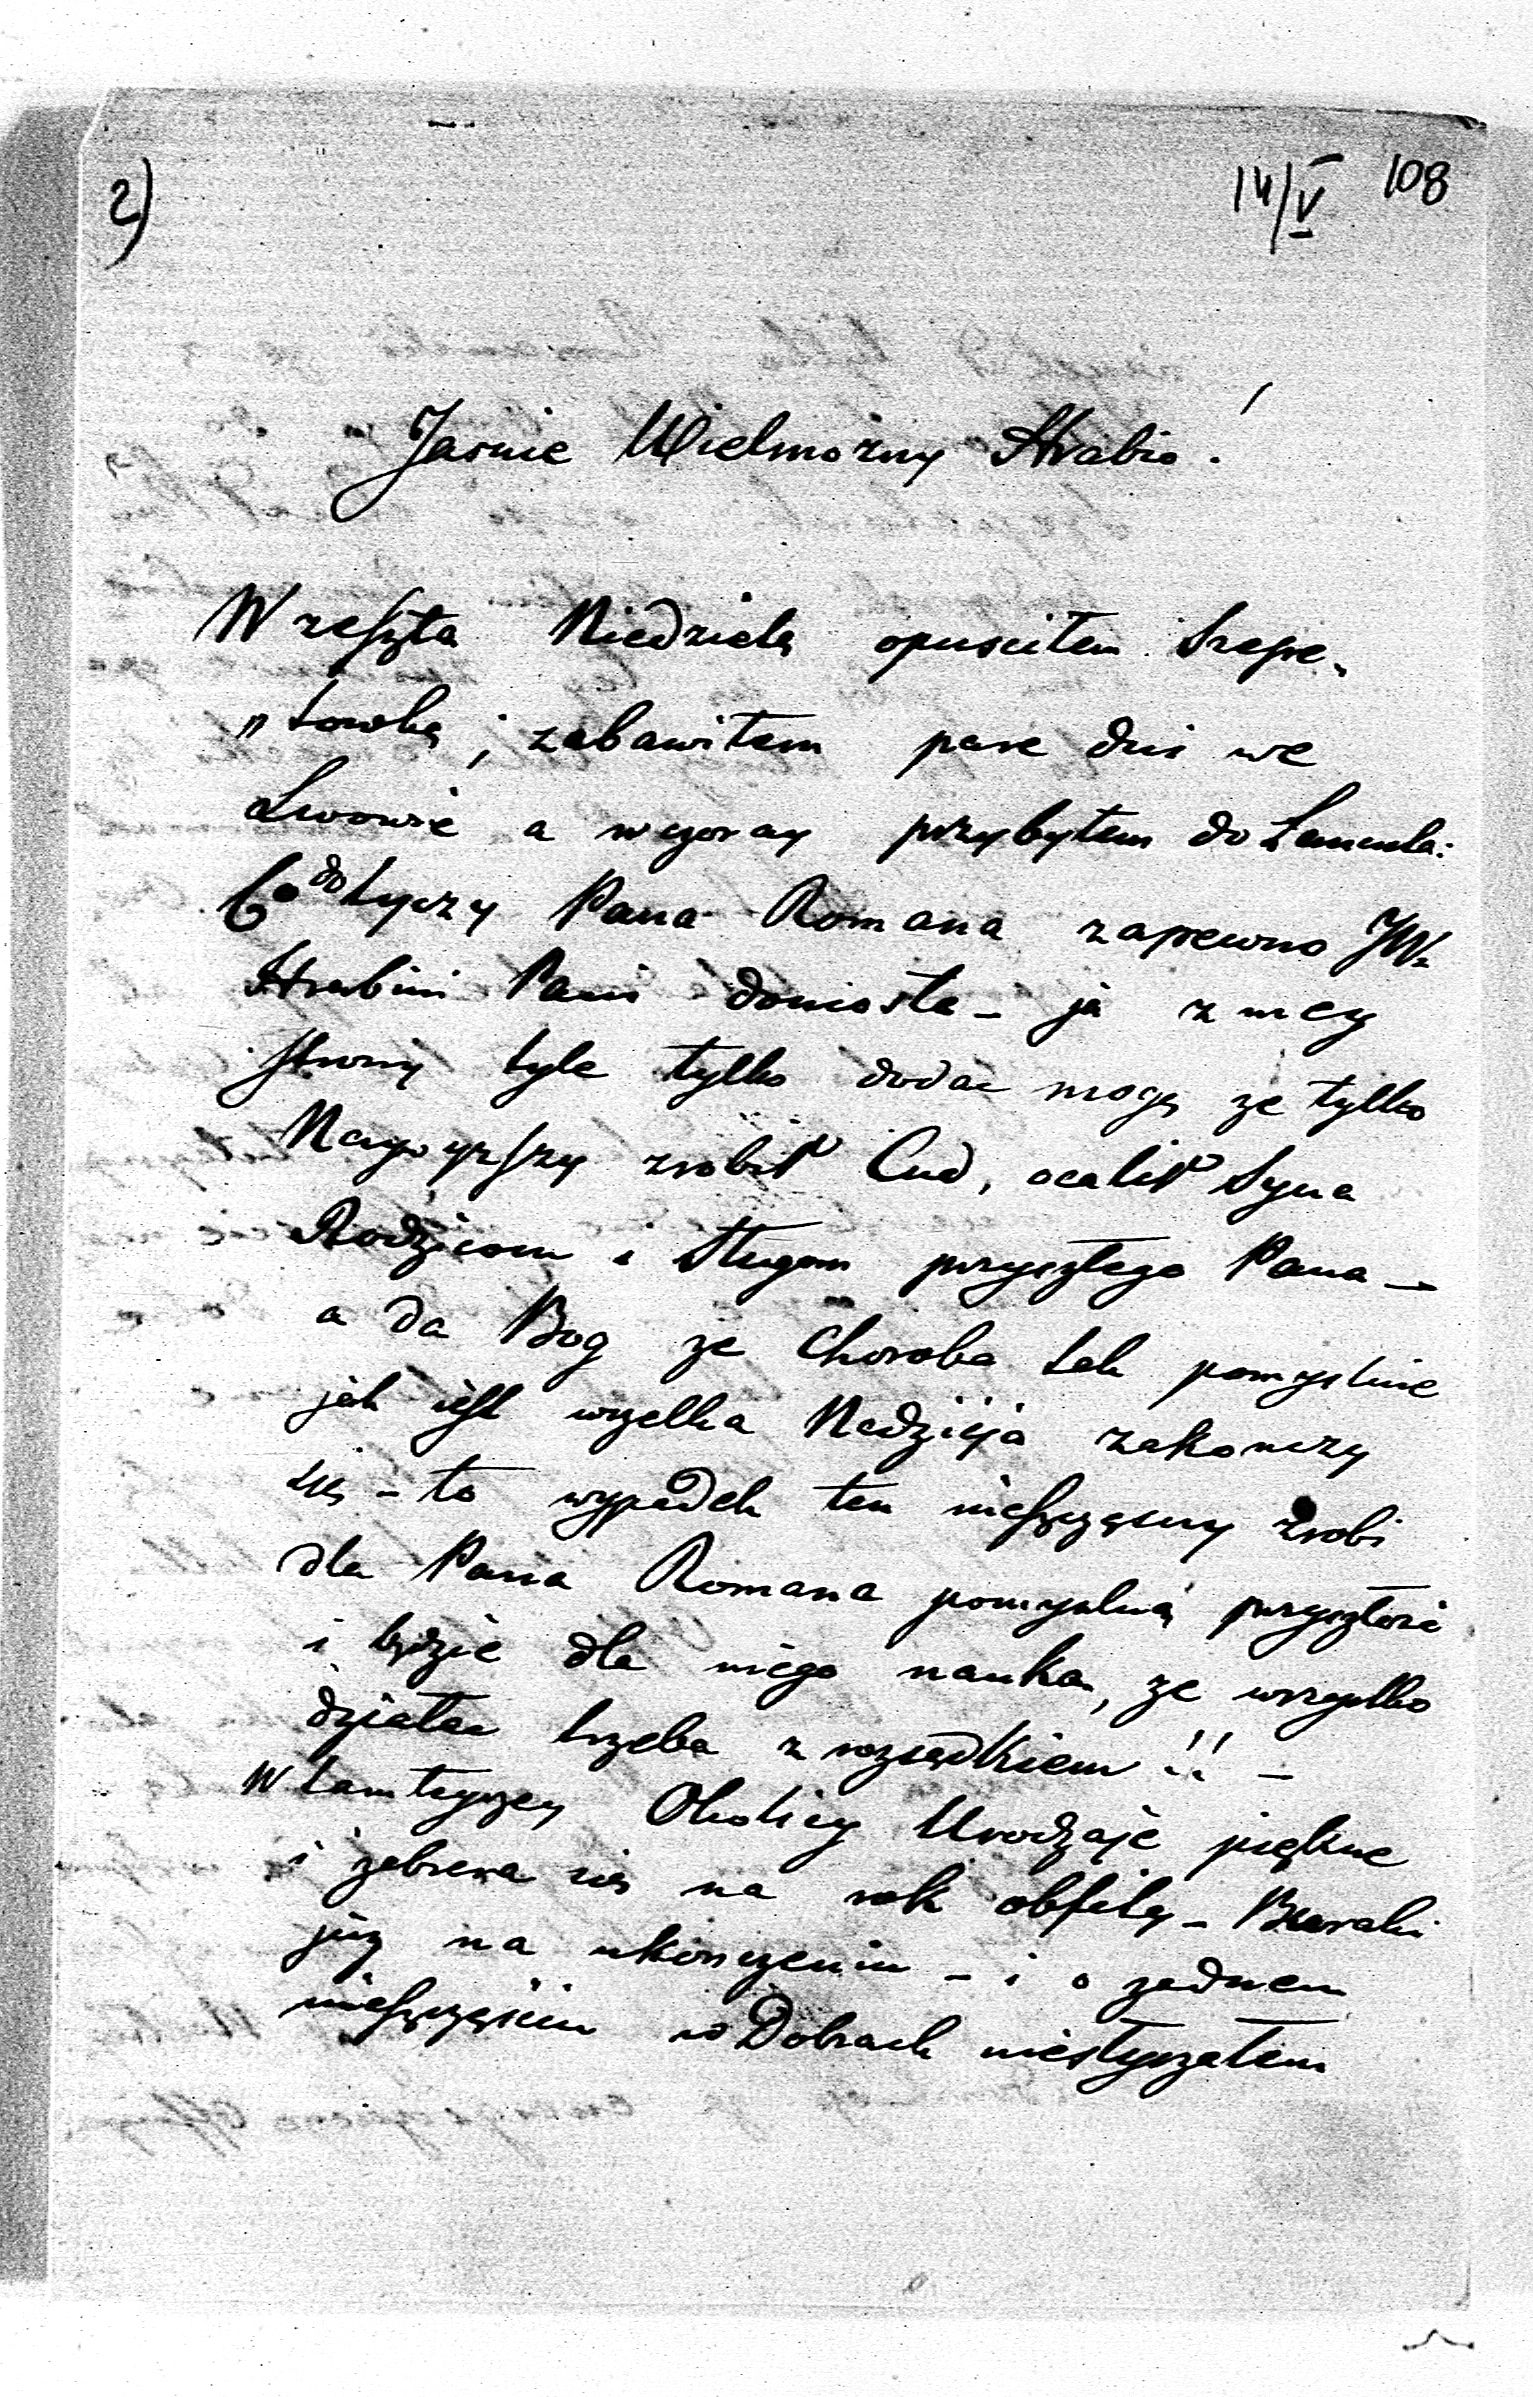 2)
14/V 108
Jasnie Wielmozny Hrabio!
W zeszłą Niedzielę opusciłem Szepe„
„towkę, zabawiłem pare dni we
Lwowie a wczoray przybyłem do Łancuta:
Co do tyczy Pana Romana zapewno JW.
Hrabini Pani doniosła – ja z mey
strony tyle tylko dodac mogę ze tylko
Naywyzszy zrobił Cud, ocalił Syna
Rodzicom i sługom przyszłego Pana –
a da Bog ze Choroba tak pomyslnie
jak jest wszelka Nadzieja zakonczy
się – to wypadek ten nieszczęsny zrobi
dla Pana Romana pomyslną przyszłosć
i będzie dla niego nauka, ze wszystko
działac trzeba z rozsądkiem!! –
W tamteyszey Okolicy Urodzaje piękne
i zabiera się na rok obfity – Buraki
juz na ukonczeniu – i o zadnem
nieszczęsciu w Dobrach niesłyszałem